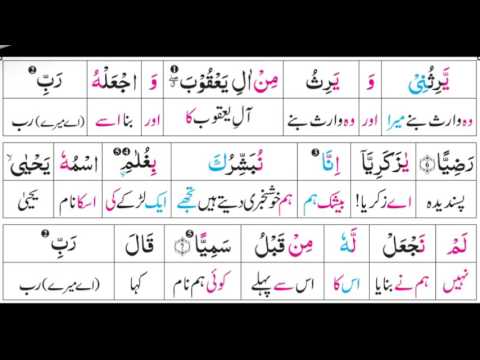 يَّرِثُنِيْ وَ يَرِثُ مِنْ اٰلِ يَعْقُوْبَ ۖ وَ اجْعَلْهُ رَبِّ
وہ وارث بنے میرا اور وہ وارث بنے آلِ یعقوب کا اور بنا اسے (اے میرے) رب
رَضِيًّا ۶ يٰزَكَرِيَّاۤ اِنَّا نُبَشِّرُكَ بِغُلٰمِ اسْمُهٗ يَحْيٰىۙ
پسندیدہ اے زکریا! بیشک ہم ہم خوشخبری دیتے ہیں تجھے ایک لڑکے کی اسکا نام یحییٰ
لَمْ نَجْعَلْ لَّهٗ مِنْ قَبْلُ سَمِيًّا ۷ قَالَ رَبِّ
نہیں ہم نے بنایا اس کا اس سے پہلے کوئی ہم نام کہا (اے میرے) رب